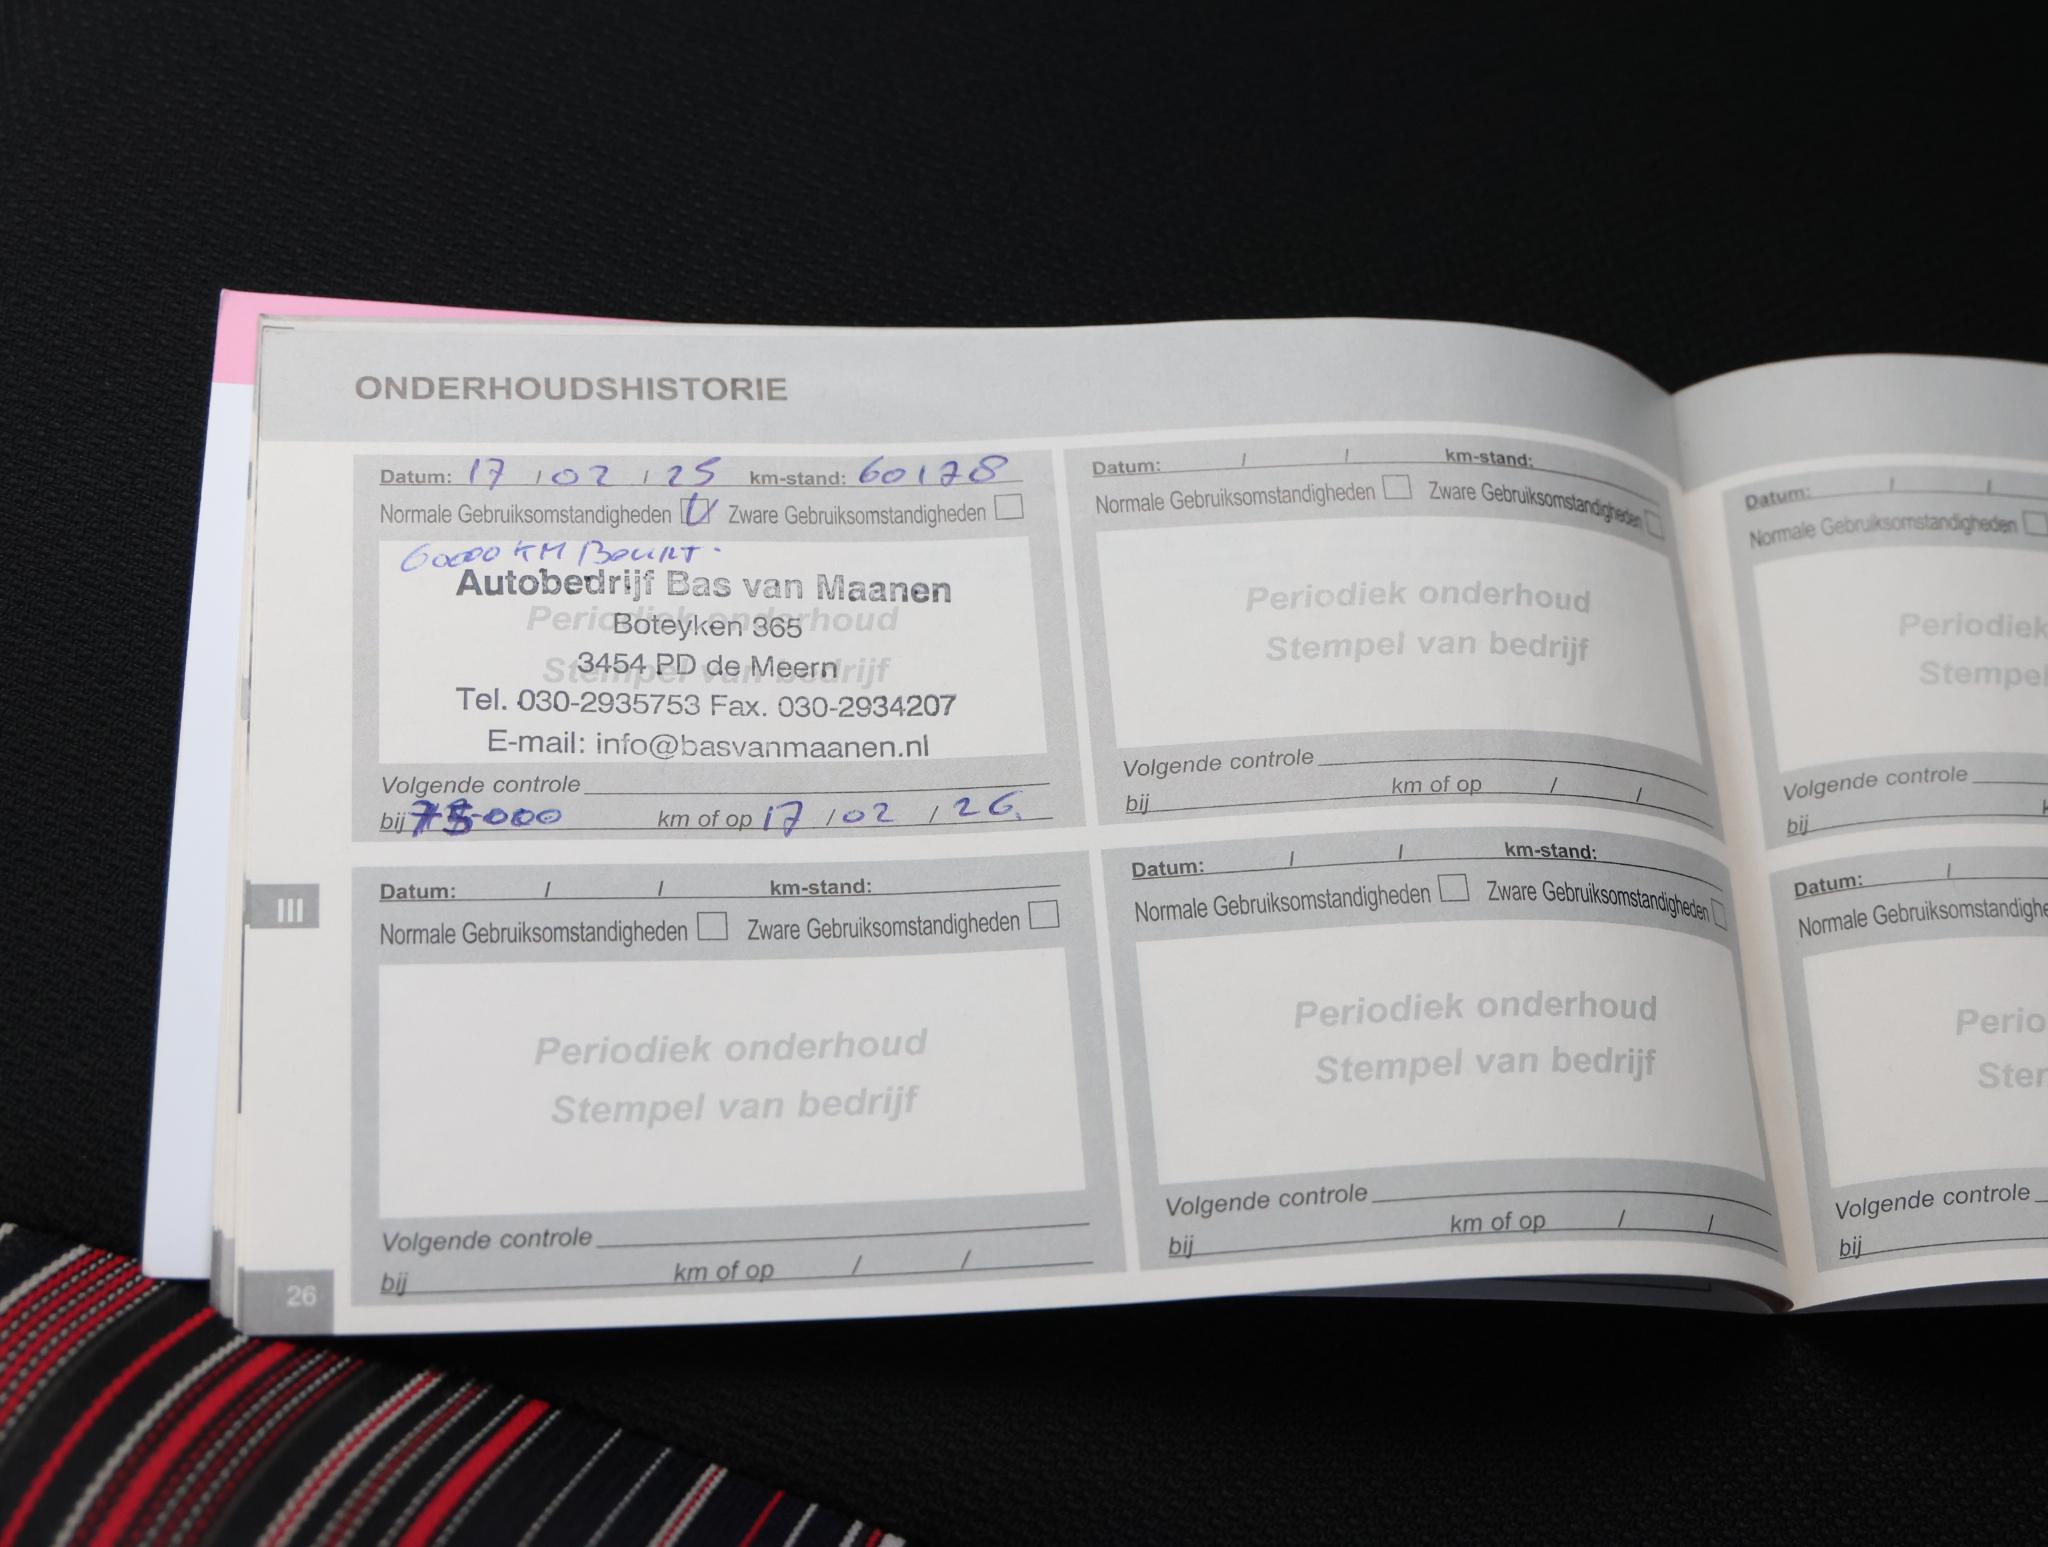 ONDERHOUDSHISTORIE
Datum: 17 / 02 / 25 km-stand: 60178
Normale Gebruiksomstandigheden Zware Gebruiksomstandigheden
60000 KM Beurt.
Autobedrijf Bas van Maanen
Periodiek onderhoud
Boteyken 365
Stempel van bedrijf
3454 PD de Meern
Tel. 030-2935753 Fax. 030-2934207
E-mail: info@basvanmaanen.nl
Volgende controle
bij 75000 km of op 17 / 02 / 26.
Datum: / / km-stand:
Normale Gebruiksomstandigheden Zware Gebruiksomstandigheden
Periodiek onderhoud
Stempel van bedrijf
Volgende controle
bij km of op / /
Datum: / / km-stand:
Normale Gebruiksomstandigheden Zware Gebruiksomstandigheden
Periodiek onderhoud
Stempel van bedrijf
Volgende controle
bij km of op / /
Datum: / / km-stand:
Normale Gebruiksomstandigheden Zware Gebruiksomstandigheden
Periodiek onderhoud
Stempel van bedrijf
Volgende controle
bij km of op / /
III
26
Datum: / /
Normale Gebruiksomstandigheden
Periodiek
Stempel
Volgende controle
bij
Datum: /
Normale Gebruiksomstandighe
Perio
Stem
Volgende controle
bij